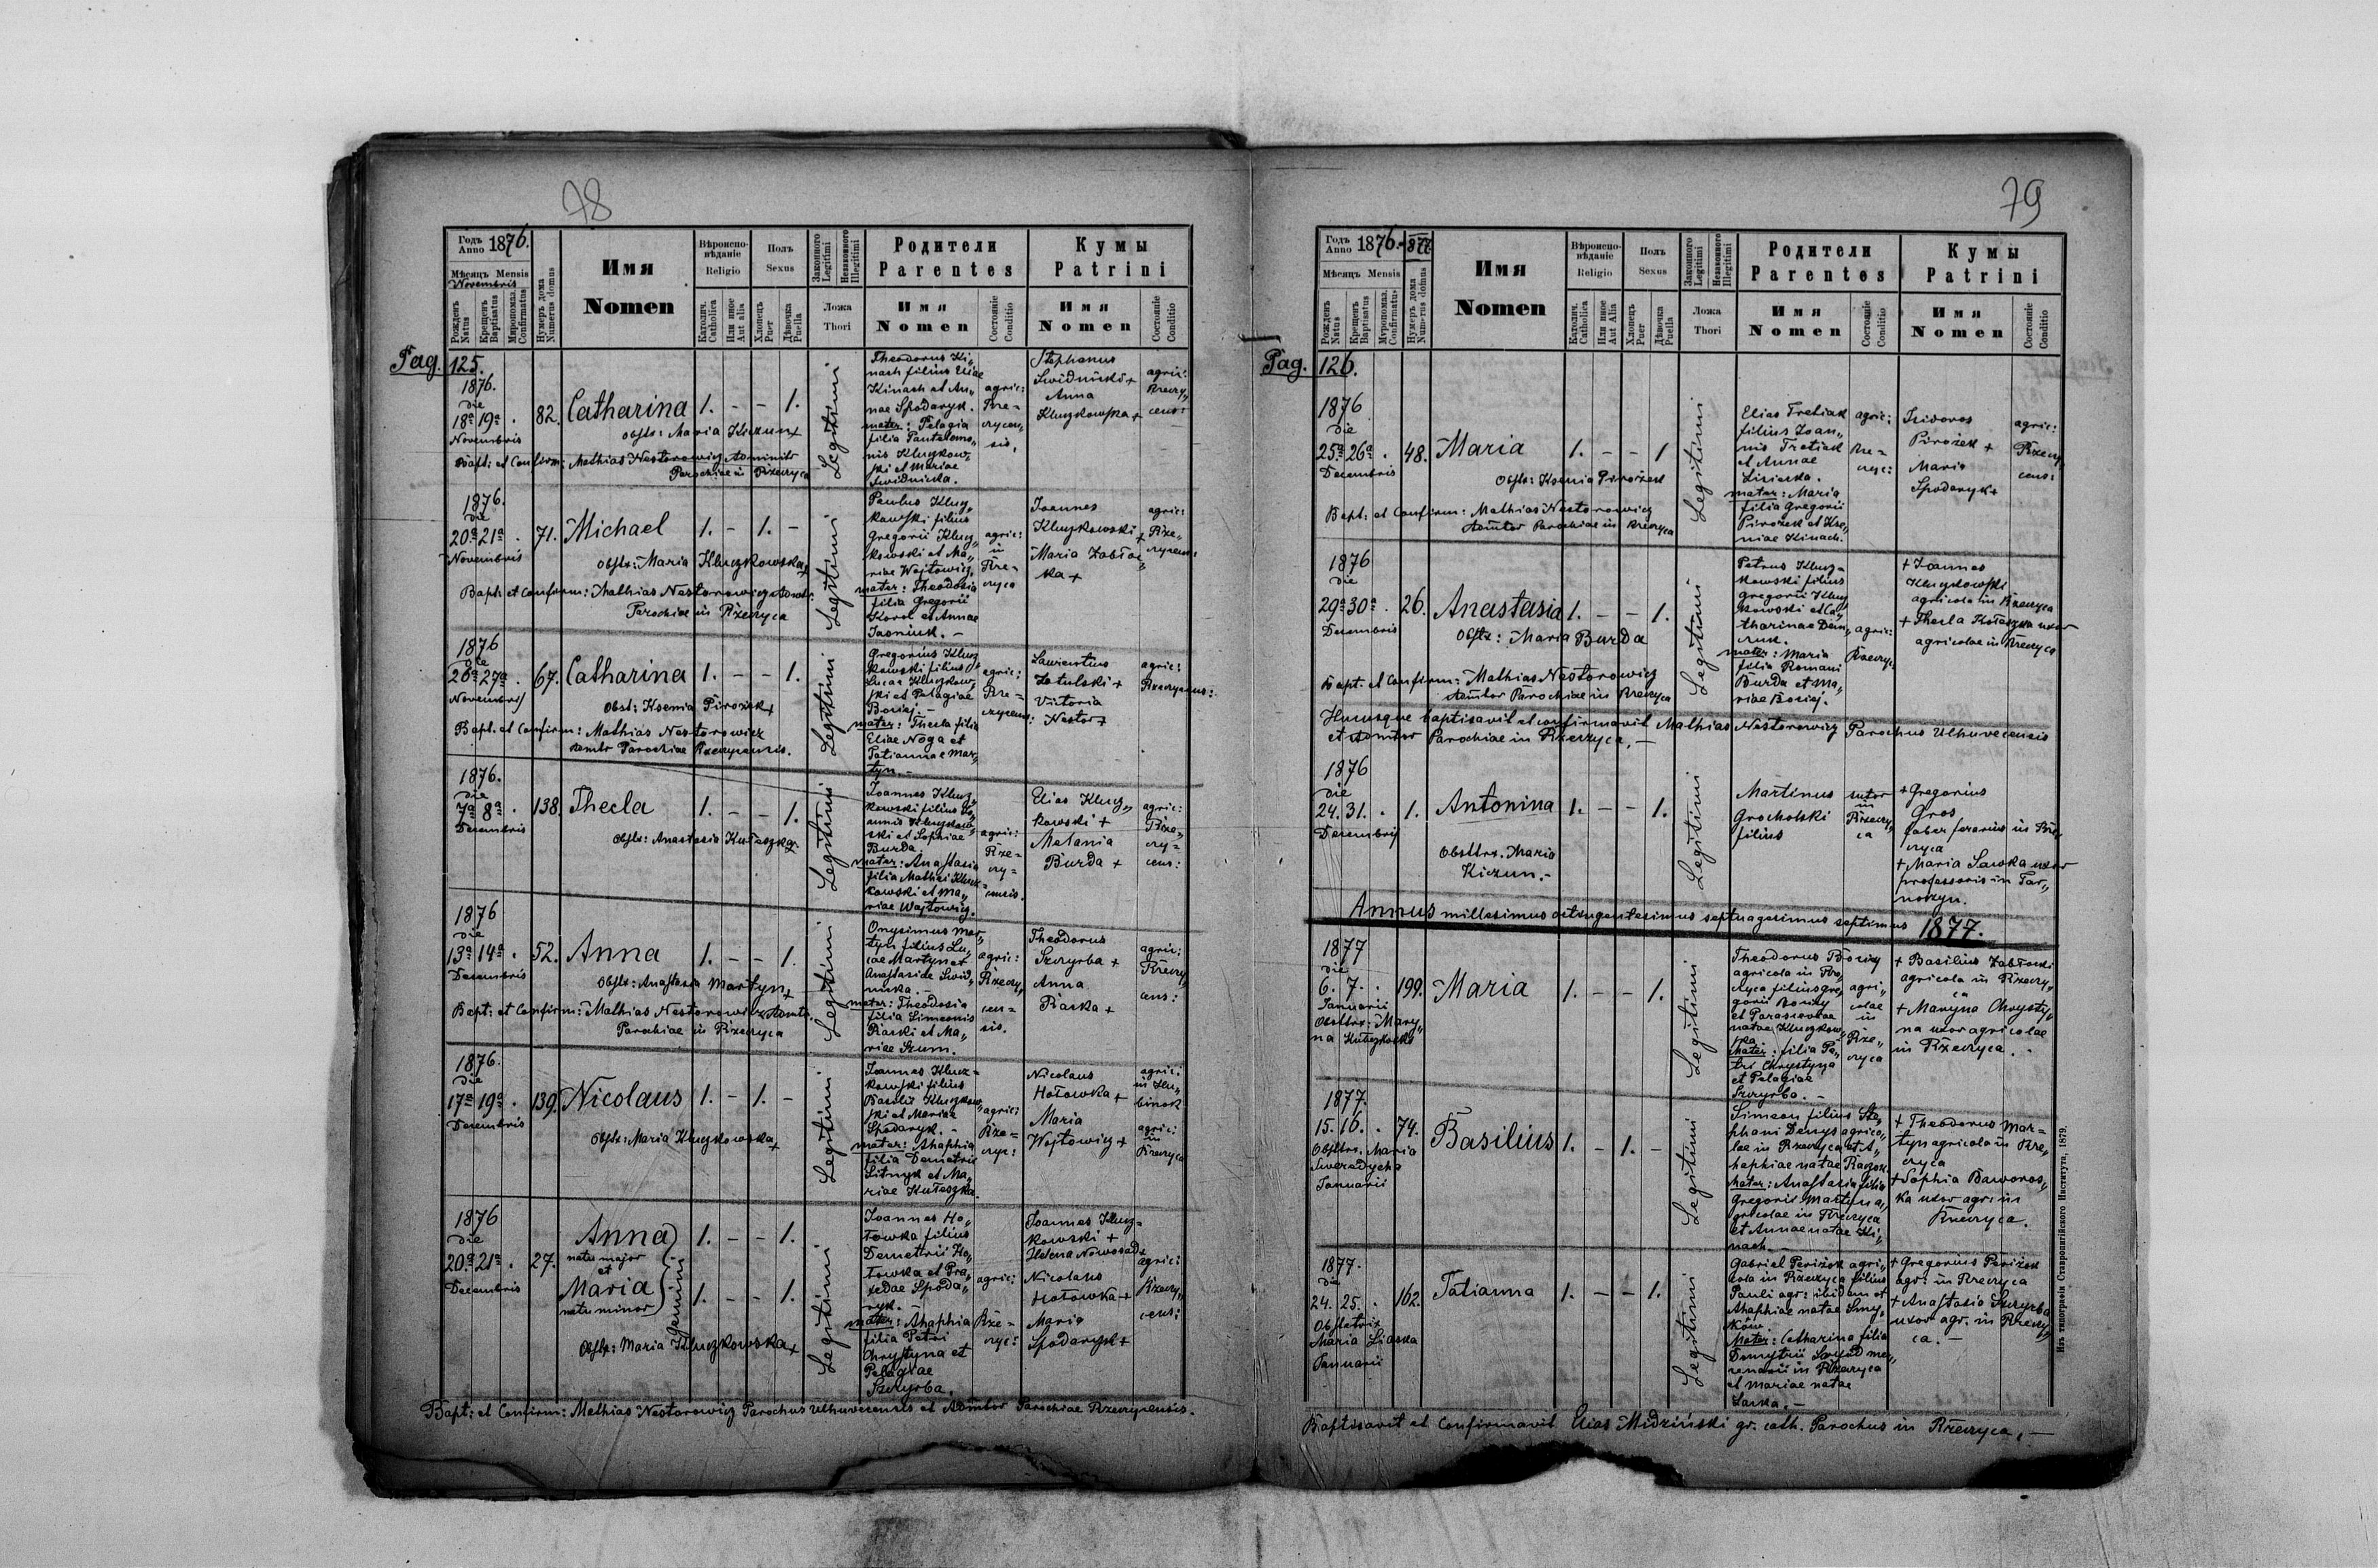 78
Годъ Anno 1876.
Мѣсяцъ Mensis
Novembris
Рожденъ Natus
Крещенъ Baptisatus
Миропомаз. Confirmatus
Нумеръ дома Numerus domus
Имя
Nomen
Вѣроиспо-
вѣданіе
Religio
Католич. Catholica
Или иное Aut alia
Полъ
Sexus
Хлопецъ Puer
Дѣвочка Puella
Законного Legitimi
Незаконного Illegitimi
Ложа
Thori
Родители
Parentes
Имя
Nomen
Состояніе Conditio
Кумы
Patrini
Имя
Nomen
Состояніе Conditio
Pag. 125.
1876.
die
18ª 19ª . 82. Catharina 1. - - 1.
Novembris
obstr: Maria Kiczun +
Bapt: et Confirm: Mathias Nestorowicz Administr
Parochiae in Rzeczyca
Legitimi
Theodorus Ki„
nach filius Eliae
Kinach et An„
nae Spodaryk.
mater: Pelagia
filia Pantelemo„
nis Kluczkow„
ski et Mariae
Swidnicka.
agric:
Rze-
czycen„
sis.
Stephanus
Swidnicki +
Anna
Kluczkowska +
agric:
Rzeczy„
cens:
1876.
die
20ª 21ª . 71. Michael 1. - 1. -
Novembris
obstr: Maria Kluczkowska +
Bapt: et Confirm: Mathias Nestorowicz Admtr.
Parochiae in Rzeczyca
Legitimi
Paulus Klucz„
kowski filius
Gregorii Klucz„
kowski et Ma„
riae Wojtowicz.
mater: Theodosia
filia Gregorii
Korol et Annae
Jaoniuk. -
agric:
in
Rze-
czyca
Joannes
Kluczkowski +
Maria Zabłoc„
ka +
agric:
Rze„
czycens:
1876
die
26ª 27ª . 67. Catharina 1. - - 1.
Novembris
Obst: Ksenia Pirożek +
Bapt. et Confirm: Mathias Nestorowicz
Admtr Parochiae Rzeczycensis.
Legitimi
Gregorius Klucz„
kowski filius
Lucae Kluczkow„
ski et Pelagiae
Boriej. -
mater: Thecla filia
Eliae Noga et
Tatiannae Mar„
tyn. -
agric:
Rze-
czycens:
Laurentius
Zatulski +
Victoria
Nestor +
agric:
Rzeczycens:
1876.
die
7ª 8ª . 138. Thecla 1. - - 1.
Decembris
Obstr: Anastasia Kułeszka.
Legitimi
Joannes Klucz„
kowski filius Jo„
annis Kluczkow„
ski et Sophiae
Burda.
mater: Anastasia
filia Mathei Klucz-
kowski et Ma„
riae Wojtowicz.
agric:
Rze-
czy-
censis.
Elias Klucz„
kowski +
Melania
Burda +
agric:
Rze„
czy-
cens:
1876
die
13ª 14ª . 52. Anna 1. - - 1.
Decembris
Obstr: Anastasia Martyn +
Bapt: et Confirm: Mathias Nestorowicz Admtr.
Parochiae in Rzeczyca
Legitimi
Onysimus Mar„
tyn filius Lu„
cae Martyn et
Anastasiae Swid„
nicka. -
mater: Theodosia
filia Simeonis
Piaski et Ma„
riae Szum.
agric:
Rzeczy„
cen-
sis.
Theodorus
Szczyrba +
Anna
Piaska +
agric:
Rzeczy„
cens:
1876.
die
17ª 19ª . 139. Nicolaus 1. - 1. -
Decembris
Obstr: Maria Kluczkowska +
Legitimi
Joannes Klucz-
kowski filius
Basilii Kluczkow„
ski et Mariae
Spodaryk. -
mater: Ahaphia
filia Demetrii
Litnyk et Ma„
riae Kułeszka.
agric:
Rze-
czyc:
Nicolaus
Hołowka +
Maria
Wojtowicz +
agric:
in Hu„
binok
agric:
in
Rzeczyca
1876
die
20ª 21ª . 27. Anna 1. - - 1.
Decembris
natu major
et
Maria 1. - - 1.
natu minor
Gemini
Obstr: Maria Kluczkowska +
Legitimi
Joannes Ho„
łowka filius
Demetrii Ho„
łowka et Pra„
xedae Spoda„
ryk. -
mater: Ahaphia
filia Petri
Chrystyna et
Pelagiae
Szczyrba.
agric:
Rze-
czyc:
Joannes Klucz-
kowski +
Helena Nowosad +
Nicolaus
Hołowka +
Maria
Spodaryk +
agric:
Rzeczy„
cens:
Bapt: et Confirm: Mathias Nestorowicz Parochus Uhnuvecensis et Admtor Parochiae Rzeczycensis.
79
Годъ Anno 1876.-1877.
Мѣсяцъ Mensis
Рожденъ Natus
Крещенъ Baptisatus
Миропомаз. Confirmatus
Нумеръ дома Numerus domus
Имя
Nomen
Вѣроиспо-
вѣданіе
Religio
Католич. Catholica
Или иное Aut Alia
Полъ
Sexus
Хлопецъ Puer
Дѣвочка Puella
Законного Legitimi
Незаконного Illegitimi
Ложа
Thori
Родители
Parentes
Имя
Nomen
Состояніе Conditio
Кумы
Patrini
Имя
Nomen
Состояніе Conditio
Pag. 126.
1876
die
25ª 26ª . 48. Maria 1. - - 1
Decembris
Obstr: Ksenia Pirożek
Bapt: et Confirm: Mathias Nestorowicz
Admtor Parochiae in Rzeczyca
Legitimi
Elias Tretiak
filius Joan„
nis Tretiak
et Annae
Lisiecka.
mater: Maria
filia Gregorii
Pirożek et Kse„
niae Kinach.
agric:
Rze-
czyc:
Isidoros
Pirożek +
Maria
Spodaryk +
agric:
Rzeczy„
cens:
1876
die
29ª 30ª . 26. Anastasia 1. - - 1.
Decembris
Obstr: Maria Burda
Bapt: et Confirm: Mathias Nestorowicz
Admtor Parochiae in Rzeczyca
Legitimi
Petrus Klucz-
kowski filius
Gregorii Klucz
kowski et Ca„
tharinae Dem„
czuk.
mater: Maria
filia Romani
Burda et Ma„
riae Boriej.
agric:
Rzeczyc
+ Joannes
Kluczkowski
agricola in Rzeczyca
+ Thecla Kołeszka uxor
agricolae in Rzeczyca
Hucusque baptisavit et confirmavit Mathias Nestorowicz Parochus Uhnuvecensis
et Admtor Parochiae in Rzeczyca. -
1876
die
24. 31. . 1. Antonina 1. - - 1.
Decembris
Obsttrx. Maria
Kiczun. -
Legitimi
Martinus
Grocholski
filius
sutor
in
Rzeczy„
ca
+ Gregorius
Gros
faber ferarius in Rze
czyca
+ Maria Sawka uxor
professoris in Tar„
noszyn.
Annus millesimus octingentesimus septuagesimus septimus 1877.
1877
die
6. 7. . 199. Maria 1. - - 1.
Januarii
Obsttrx: Mary„
na Kułeszka
Legitimi
Theodorus Boriej
agricola in Rze„
czyca filius Gre„
gorii Boriej
et Parascevae
natae Kluczkow„
ska
Mater: filia Pe„
tri Chrystyna
et Pelagiae
Szczyrba. -
agri„
colae
in
Rze„
czyca
+ Basilius Zabłocki
agricola in Rzeczy„
ca
+ Maryna Chrysty„
na uxor agricolae
in Rzeczyca. -
1877.
15. 16. . 74. Basilius 1. - 1. -
Obsttrx. Maria
Januarii
Legitimi
Simeon filius Ste„
phani Denys agrico„
lae in Rzeczyca et A„
haphiae natae Raczok.
Mater: Anastasia filia
Gregorii Martyn a„
gricolae in Rzeczyca
et Annae natae Ki„
nach. -
+ Theodorus Mar-
tyn agricola in Rze„
czyca
+ Sophia Baworos„
ka uxor agr: in
Rzeczyca.
1877.
die
24. 25. . 162. Tatianna 1. - - 1.
Obstetrix
Maria Liaska
Januarii
Legitimi
Gabriel Perižok agri„
cola in Rzeczyca filius
Pauli agr: ibidem et
Ahaphiae natae Smy„
ków.
Mater: Catharina filia
Demytrii me„
renarii in Rzeczyca
et Mariae natae
Laska. -
+ Gregorius Perižok
agr: in Rzeczyca
+ Anastasia Szczyrba
uxor agr. in Rzeczy„
ca. -
Baptisavit et Confirmavit Elias Midziński gr. cath. Parochus in Rzeczyca. -
Изъ типографіи Ставропигійского Института, 1879.